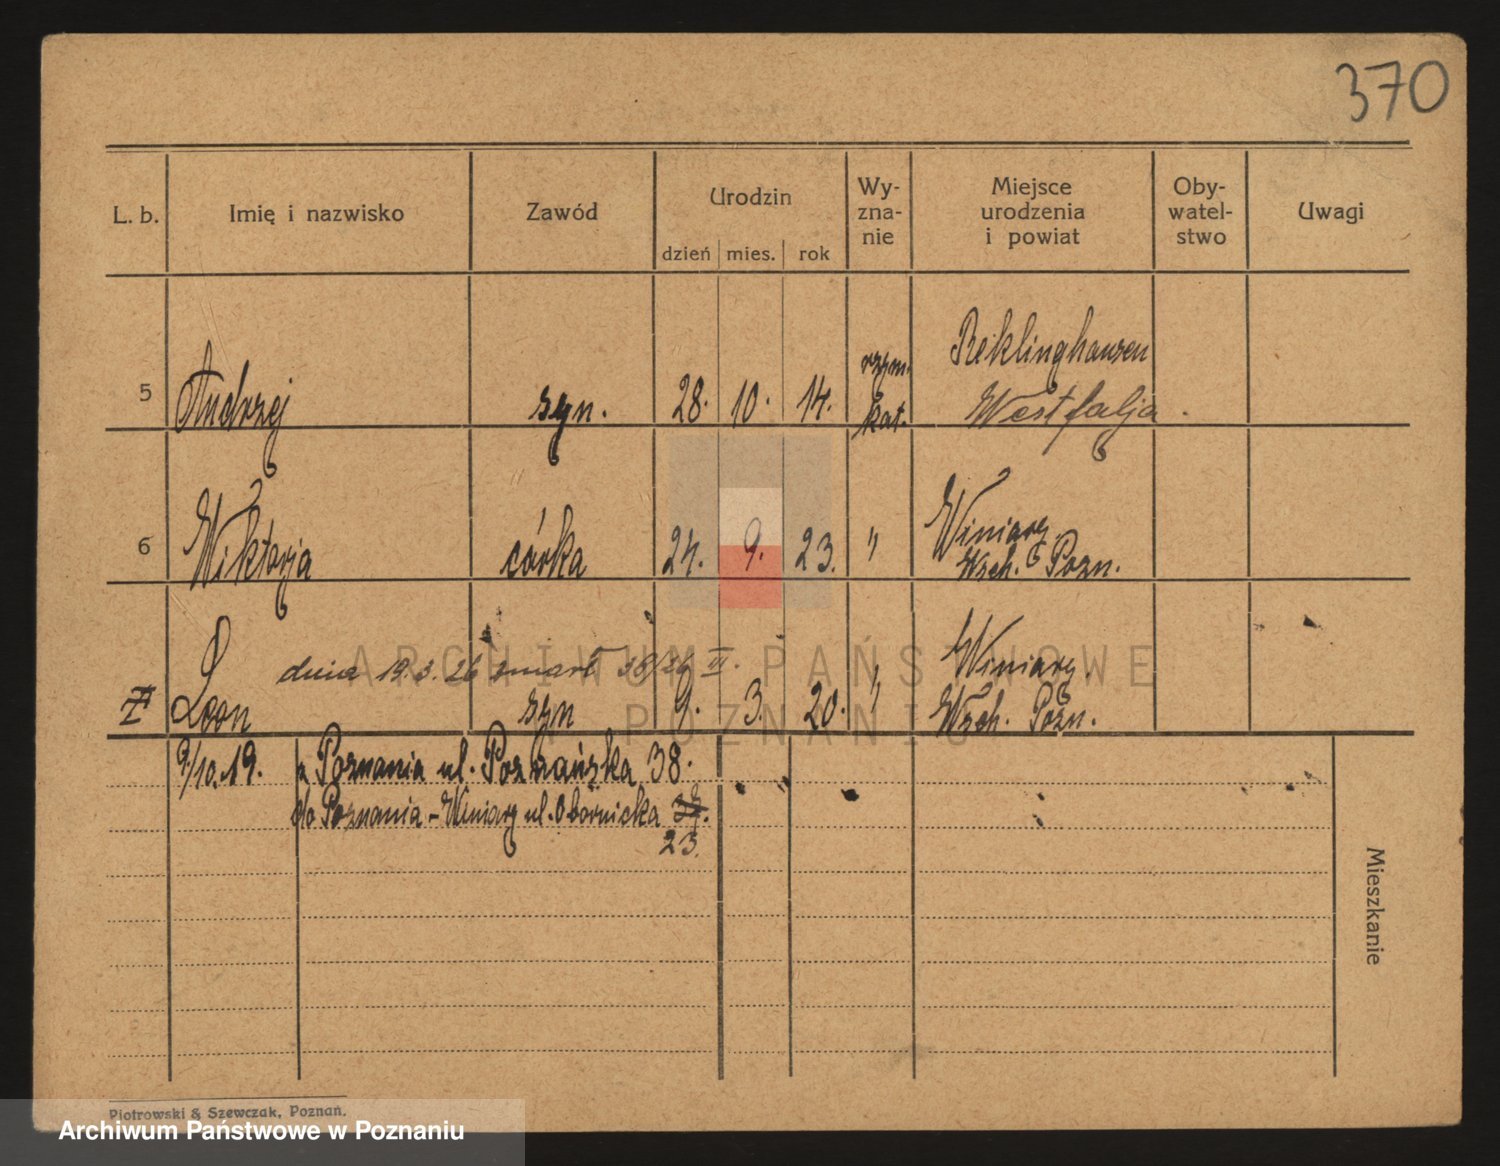 370
L. b. Imię i nazwisko Zawód Urodzin dzień mies. rok Wy-zna-nie Miejsce urodzenia i powiat Oby-watel-stwo Uwagi
5 Andrzej syn. 28. 10. 14. rzym. kat. Reklinghausen Westfalja.
6 Wiktorja córka 24. 9. 23. " Winiary. Wsch. Pozn.
dnia 19.3.26 zmarł 38/26 III.
7 Leon syn 9. 3. 20. " Winiary. Wsch. Pozn.
9/10.19. z Poznania ul. Poznańska 38.
do Poznania - Winiary ul. Obornicka
23.
Mieszkanie
ARCHIWUM PAŃSTWOWE
W POZNANIU
Piotrowski & Szewczak, Poznań.
Archiwum Państwowe w Poznaniu